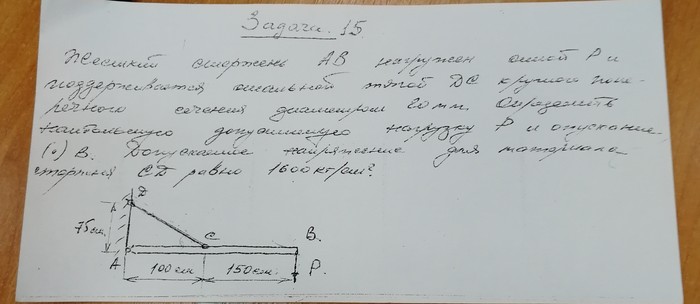 Задача. 15.
Жесткий стержень АВ нагружен силой Р и
поддерживается стальной тягой DC круглого попе-
речного сечения диаметром 20 мм. Определить
наибольшую допускаемую нагрузку Р и опускание
(·) В. Допускаемое напряжение для материала
стержня СД равно 1600 кг/см².
D
75 см.
C
B.
A
100 см
150 см.
P.